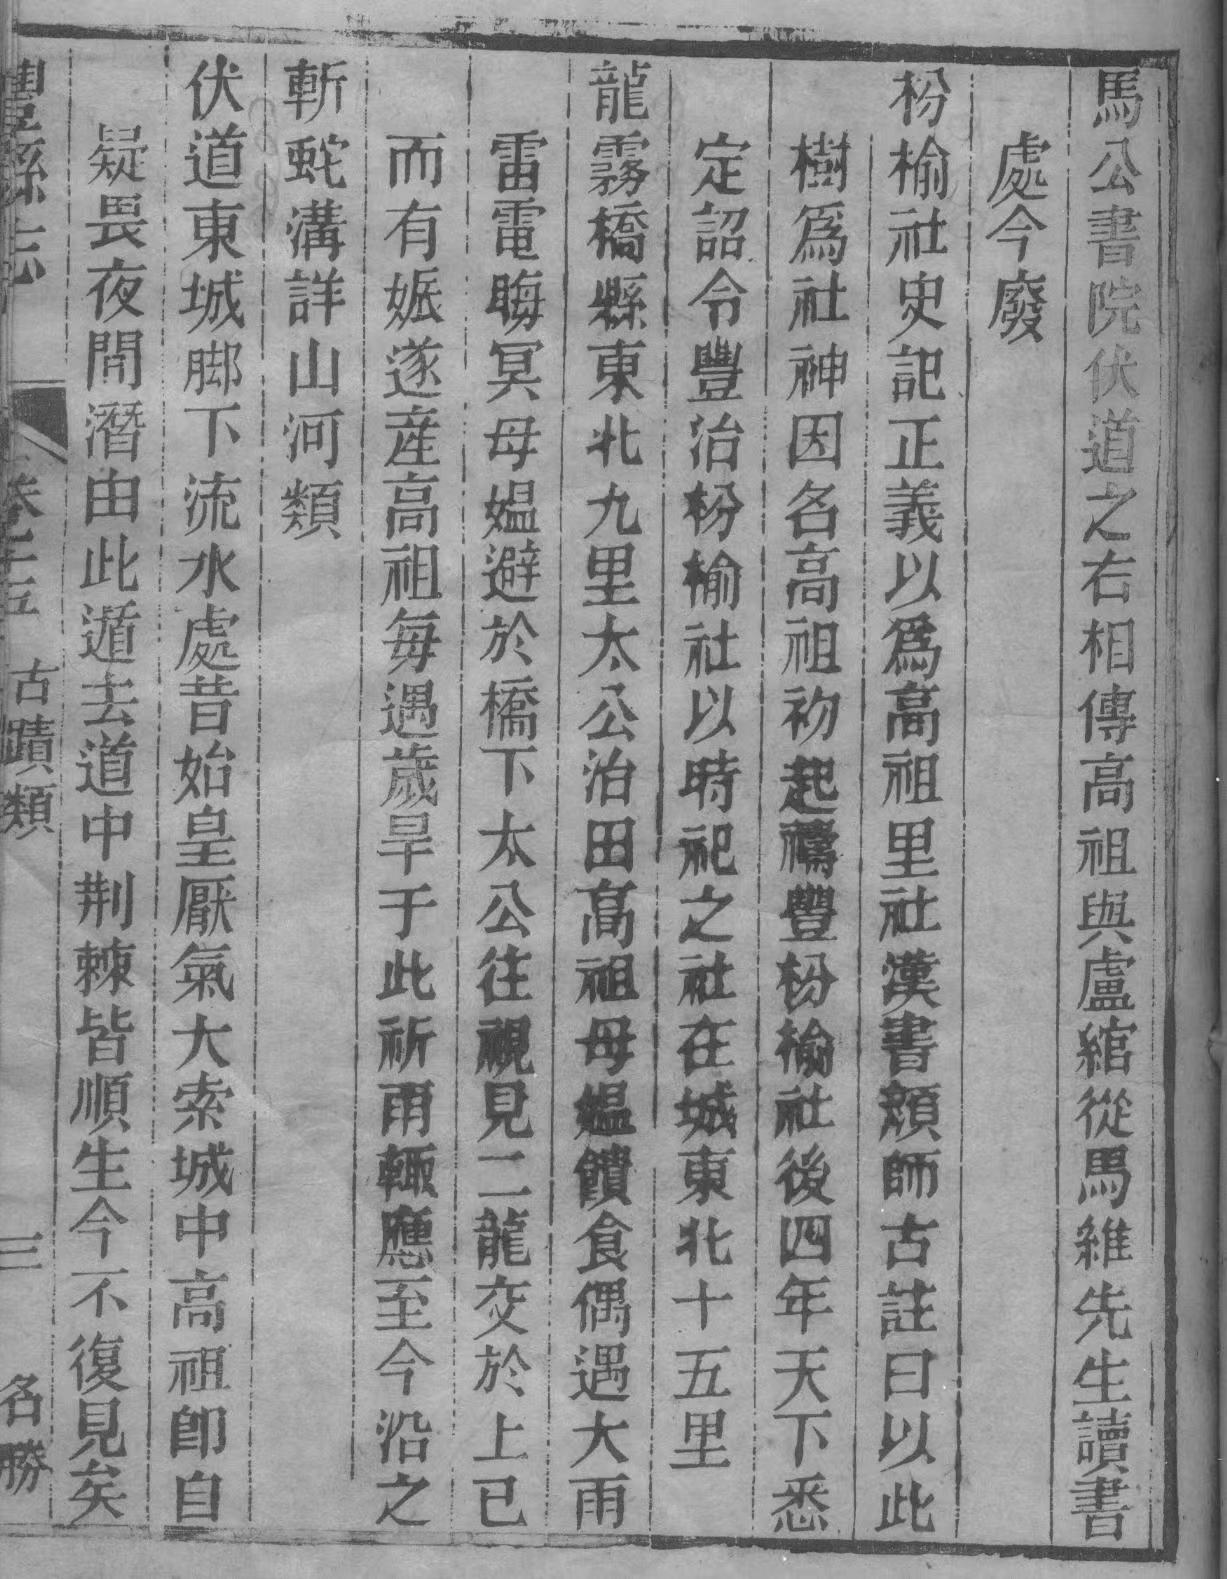 馬公書院伏道之右相傳高祖與盧綰從馬維先生讀書
處今廢
枌榆社史記正義以爲高祖里社漢書顏師古註曰以此
樹爲社神因名高祖初起禱豐枌榆社後四年天下悉
定詔令豐治枌榆社以時祀之社在城東北十五里
龍霧橋縣東北九里太公治田高祖母媼饋食偶遇大雨
雷電晦冥母媼避於橋下太公往視見二龍交於上已
而有娠遂産高祖每遇歲旱于此祈雨輒應至今沿之
斬蛇溝詳山河類
伏道東城脚下流水處昔始皇厭氣大索城中高祖卽自
疑畏夜間潛由此遁去道中荆棘皆順生今不復見矣
豐縣志 卷十五 古蹟類 三 名勝